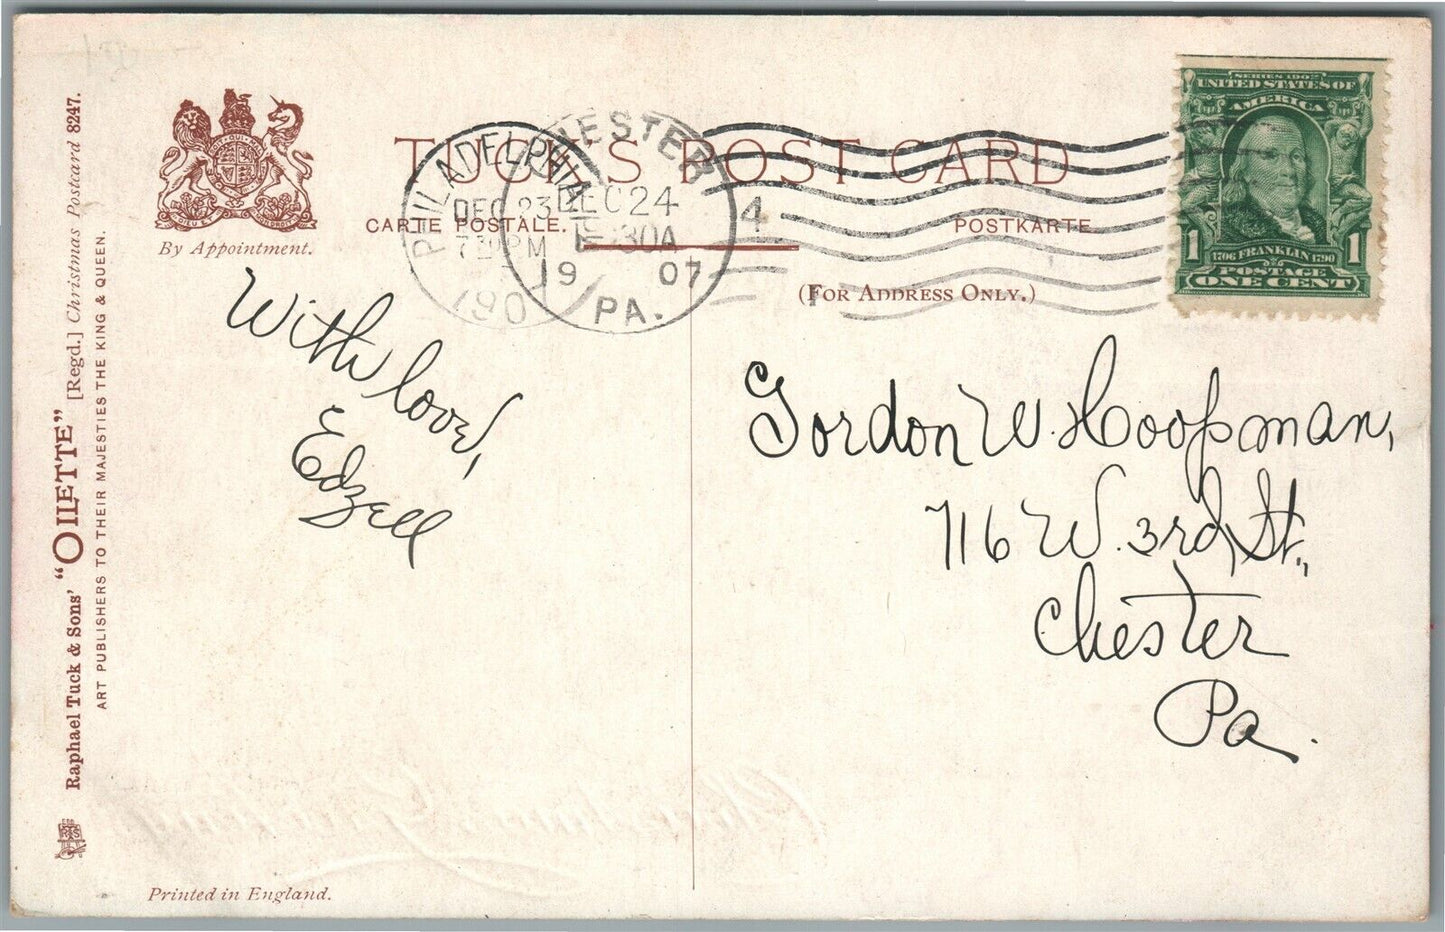 Raphael Tuck & Sons' "OILETTE" [Regd.] Christmas Postcard 8247.
ART PUBLISHERS TO THEIR MAJESTIES THE KING & QUEEN.
By Appointment.
TUCK'S POST CARD
CARTE POSTALE.
POSTKARTE
(FOR ADDRESS ONLY.)
PHILADELPHIA
DEC 23
7 30 PM
190
CHESTER
DEC 24
30A
1907
PA.
4
UNITED STATES OF
AMERICA
1706 FRANKLIN 1790
1 POSTAGE 1
ONE CENT
With love,
Edzell
Gordon W. Hoopman,
716 W. 3rd St.,
Chester
Pa.
Printed in England.